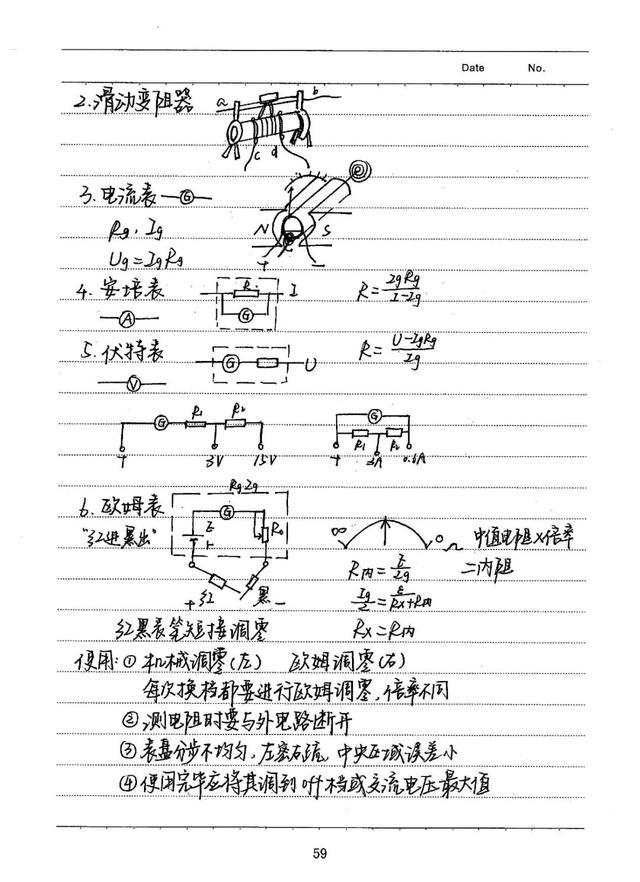 Date No.
2.滑动变阻器
a b
c d
3.电流表 G
N S
+ −
Rg, Ig
Ug=IgRg
4.安培表
R I
G
R=IgRg/(I-Ig)
A
5.伏特表
G U
R=(U-IgRg)/Ig
V
G R₁ R₂
+ 3V 15V
G
R₁ R₂
+ 3A 0.6A
6.欧姆表
Rg Ig
G
"红进黑出"
E R₀
∞ 0 Ω
中值电阻×倍率
=内阻
R内=E/Ig
Ig/2=E/(Rx+R内)
Rx=R内
+ 红 黑 −
红黑表笔短接调零
使用:①机械调零(左) 欧姆调零(右)
每次换档都要进行欧姆调零,倍率不同
②测电阻时要与外电路断开
③表盘分步不均匀,左密右疏,中央区域误差小
④使用完毕应将其调到off档或交流电压最大值
59